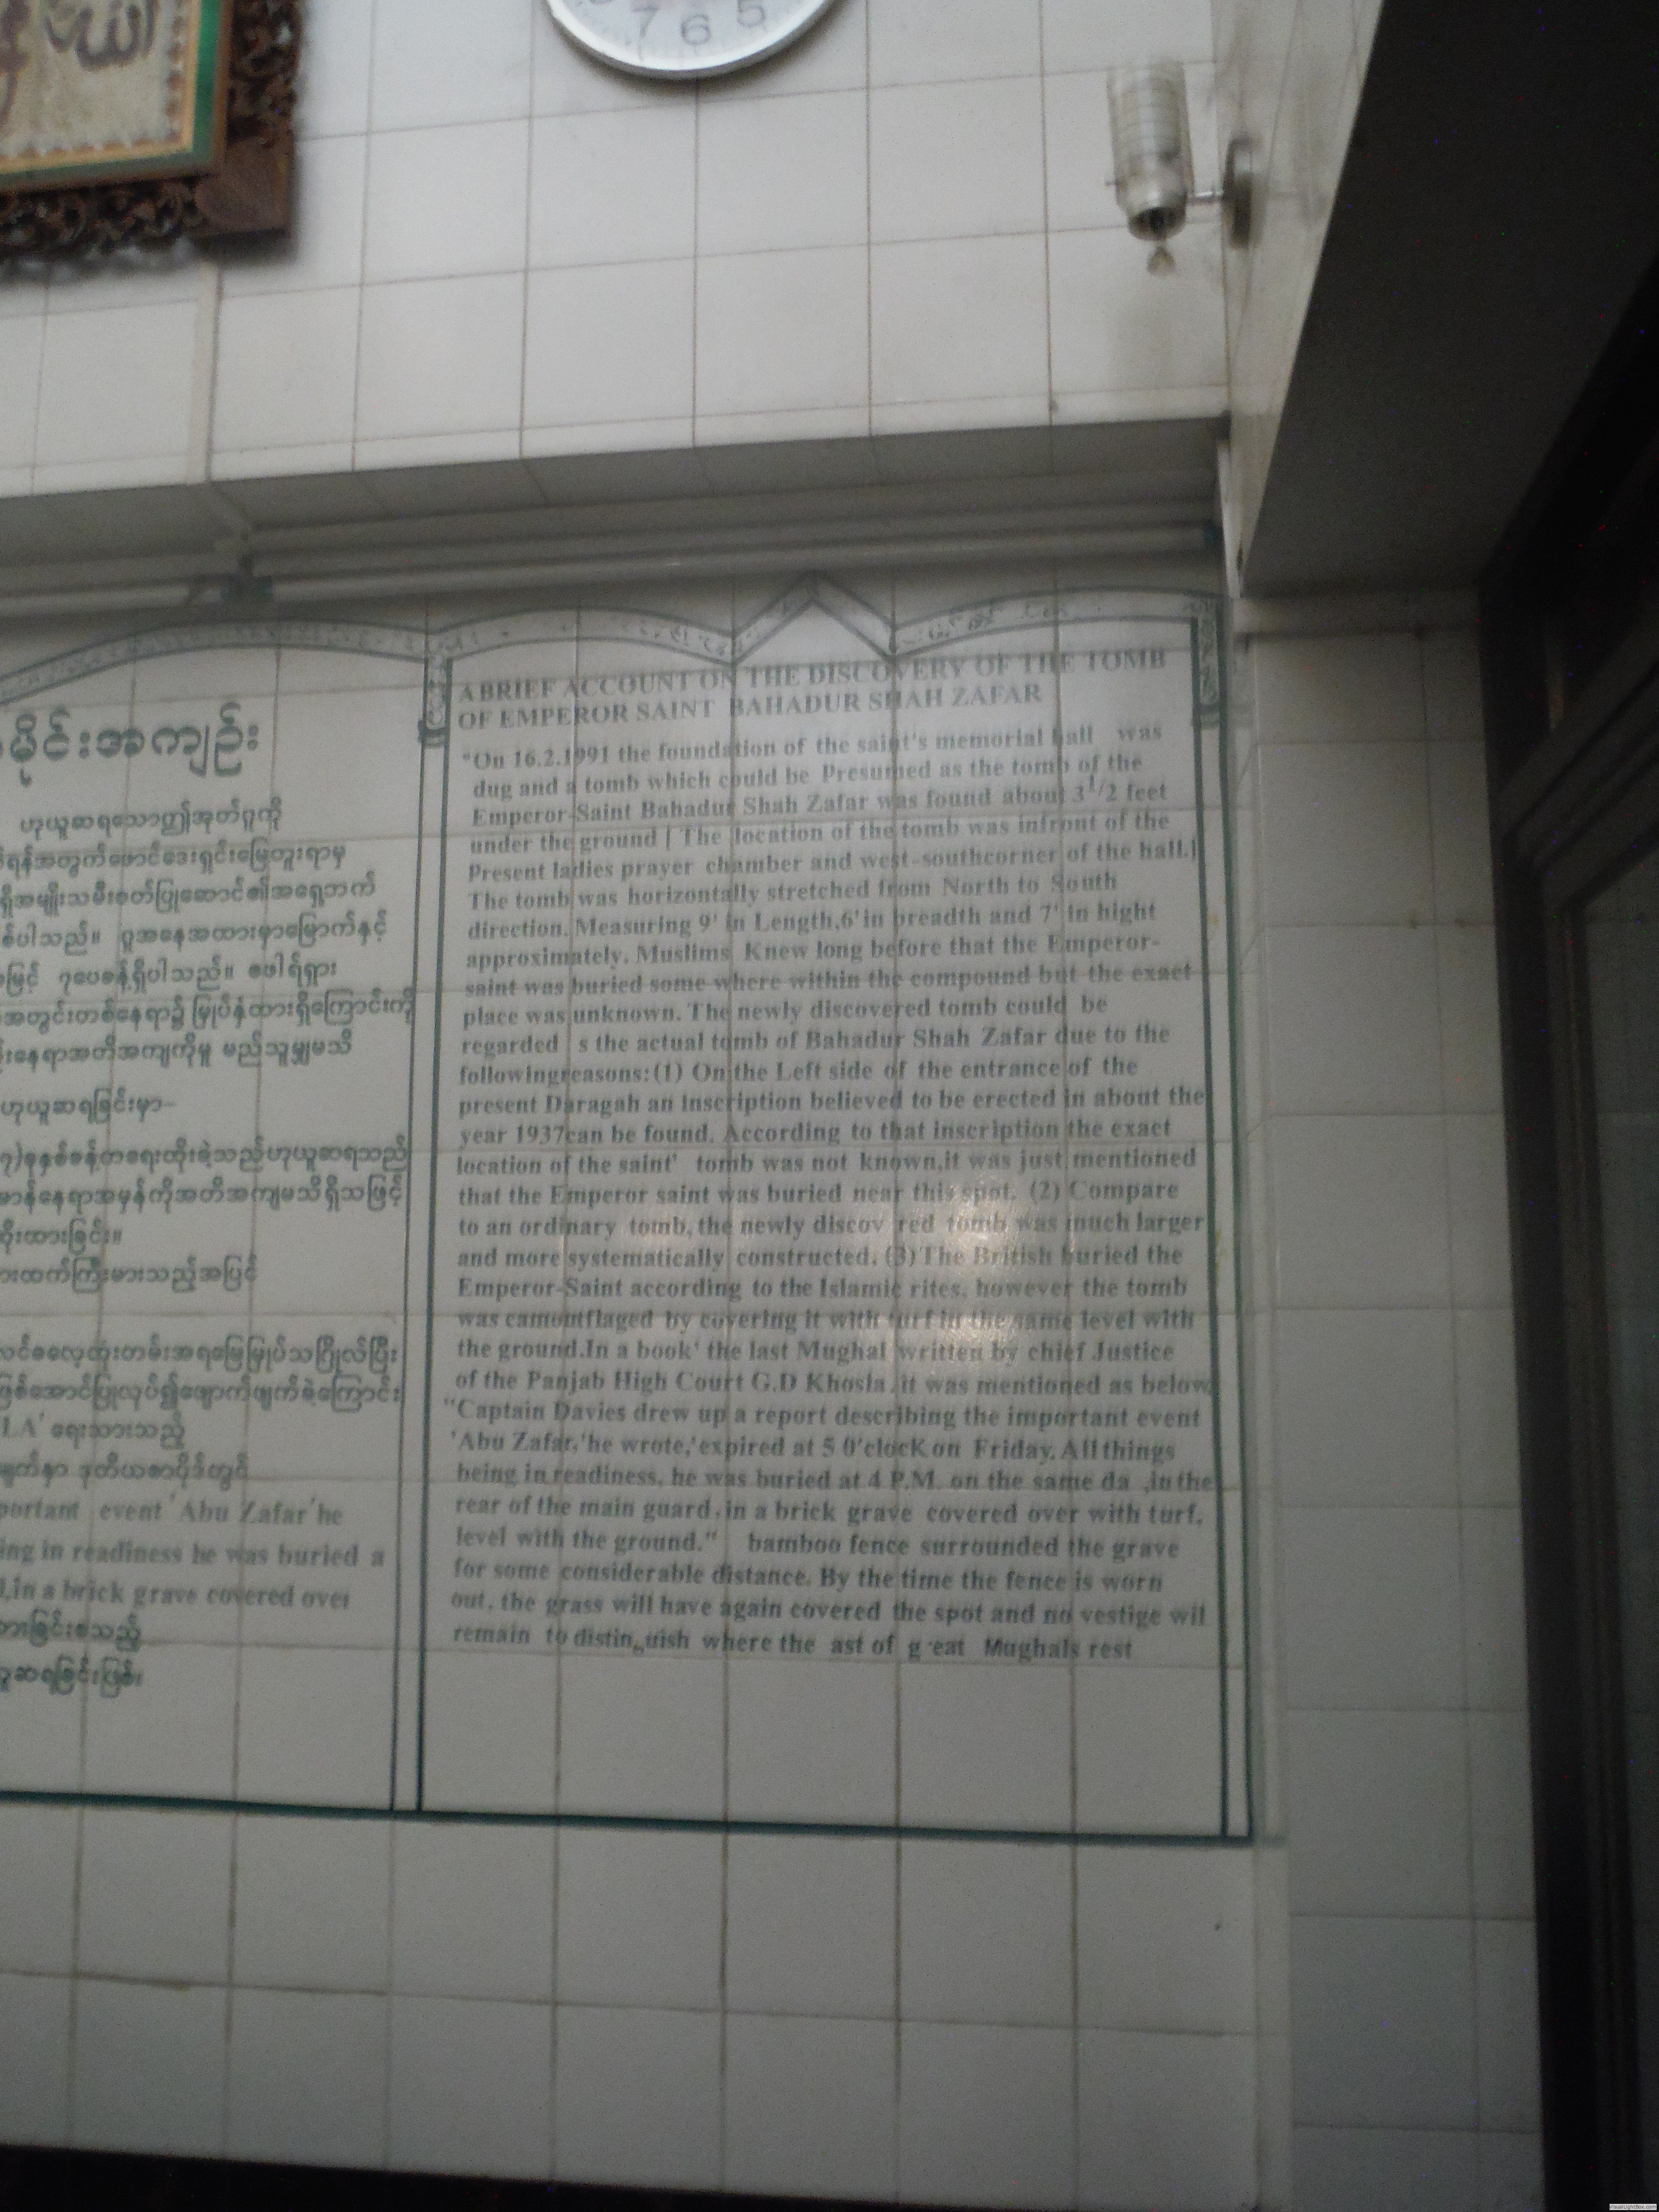 7 6 5
မိုင်းအကျဉ်း
ဟုယူဆရသောဤအုတ်ဂူကို
ရန်အတွက်ဖောင်ဒေးရှင်းမြေတူးရာမှ
ရှိအမျိုးသမီးဝတ်ပြုဆောင်၏အရှေ့ဘက်
စ်ပါသည်။ ဂူအနေအထားမှာမြောက်နှင့်
မြင့် ၇ပေခန့်ရှိပါသည်။ ဧပေါရ်ရှား
အတွင်းတစ်နေရာ၌ မြှုပ်နှံထားရှိကြောင်းကို
းနေရာအတိအကျကိုမူ မည်သူမျှမသိ
ဟုယူဆရခြင်းမှာ-
၇)ခုနှစ်ခန့်ကရေးထိုးခဲ့သည်ဟုယူဆရသည်
မာန်နေရာအမှန်ကိုအတိအကျမသိရှိသဖြင့်
ိုးထားခြင်း။
ားထက်ကြီးမားသည့်အပြင်
လင်ဓလေ့ထုံးတမ်းအရမြေမြှုပ်သဂြိုလ်ပြီး
ဖြစ်အောင်ပြုလုပ်၍ဖျောက်ဖျက်ခဲ့ကြောင်း
LA' ရေးသားသည့်
မျက်နှာ ဒုတိယစာပိုဒ်တွင်
portant event 'Abu Zafar' he
ing in readiness he was buried a
,in a brick grave covered over
ထားခြင်းစသည့်
ယူဆရခြင်းဖြစ်၊
A BRIEF ACCOUNT ON THE DISCOVERY OF THE TOMB
OF EMPEROR SAINT BAHADUR SHAH ZAFAR
"On 16.2.1991 the foundation of the saint's memorial hall was
dug and a tomb which could be Presumed as the tomb of the
Emperor-Saint Bahadur Shah Zafar was found about 3 1/2 feet
under the ground [ The location of the tomb was infront of the
Present ladies prayer chamber and west-southcorner of the hall.]
The tomb was horizontally stretched from North to South
direction. Measuring 9' in Length,6'in breadth and 7' in hight
approximately. Muslims Knew long before that the Emperor-
saint was buried some where within the compound but the exact
place was unknown. The newly discovered tomb could be
regarded s the actual tomb of Bahadur Shah Zafar due to the
followingreasons:(1) On the Left side of the entrance of the
present Daragah an inscription believed to be erected in about the
year 1937can be found. According to that inscription the exact
location of the saint' tomb was not known,it was just mentioned
that the Emperor saint was buried near this spot. (2) Compare
to an ordinary tomb, the newly discov red tomb was much larger
and more systematically constructed. (3)The British buried the
Emperor-Saint according to the Islamic rites, however the tomb
was camoutflaged by covering it with turf in the same level with
the ground.In a book' the last Mughal written by chief Justice
of the Panjab High Court G.D Khosla, it was mentioned as below.
"Captain Davies drew up a report describing the important event
'Abu Zafar,'he wrote,'expired at 5 0'clocK on Friday. All things
being in readiness, he was buried at 4 P.M. on the same da ,in the
rear of the main guard, in a brick grave covered over with turf,
level with the ground." bamboo fence surrounded the grave
for some considerable distance. By the time the fence is worn
out, the grass will have again covered the spot and no vestige wil
remain to distinguish where the ast of g eat Mughals rest